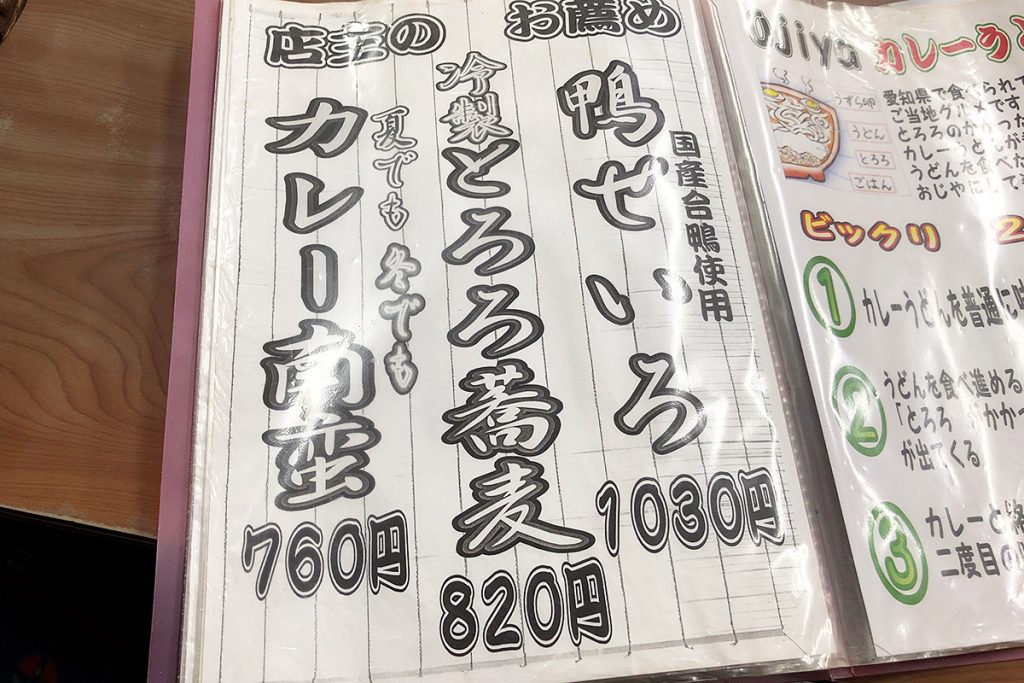 店主の お薦め
鴨せいろ
国産合鴨使用
1030円
冷製とろろ蕎麦
820円
夏でも 冬でも
カレー南蛮
760円
Ojiya カレーうど
うずら卵
うどん
とろろ
ごはん
愛知県で食べられて
ご当地グルメです
とろろのかかった
カレーうどんが
うどんを食べた
おじやにして
ビックリ 2
1 カレーうどんを普通に
2 うどんを食べ進める
「とろろ かかっ
が出てくる
3 カレーと
二度目の